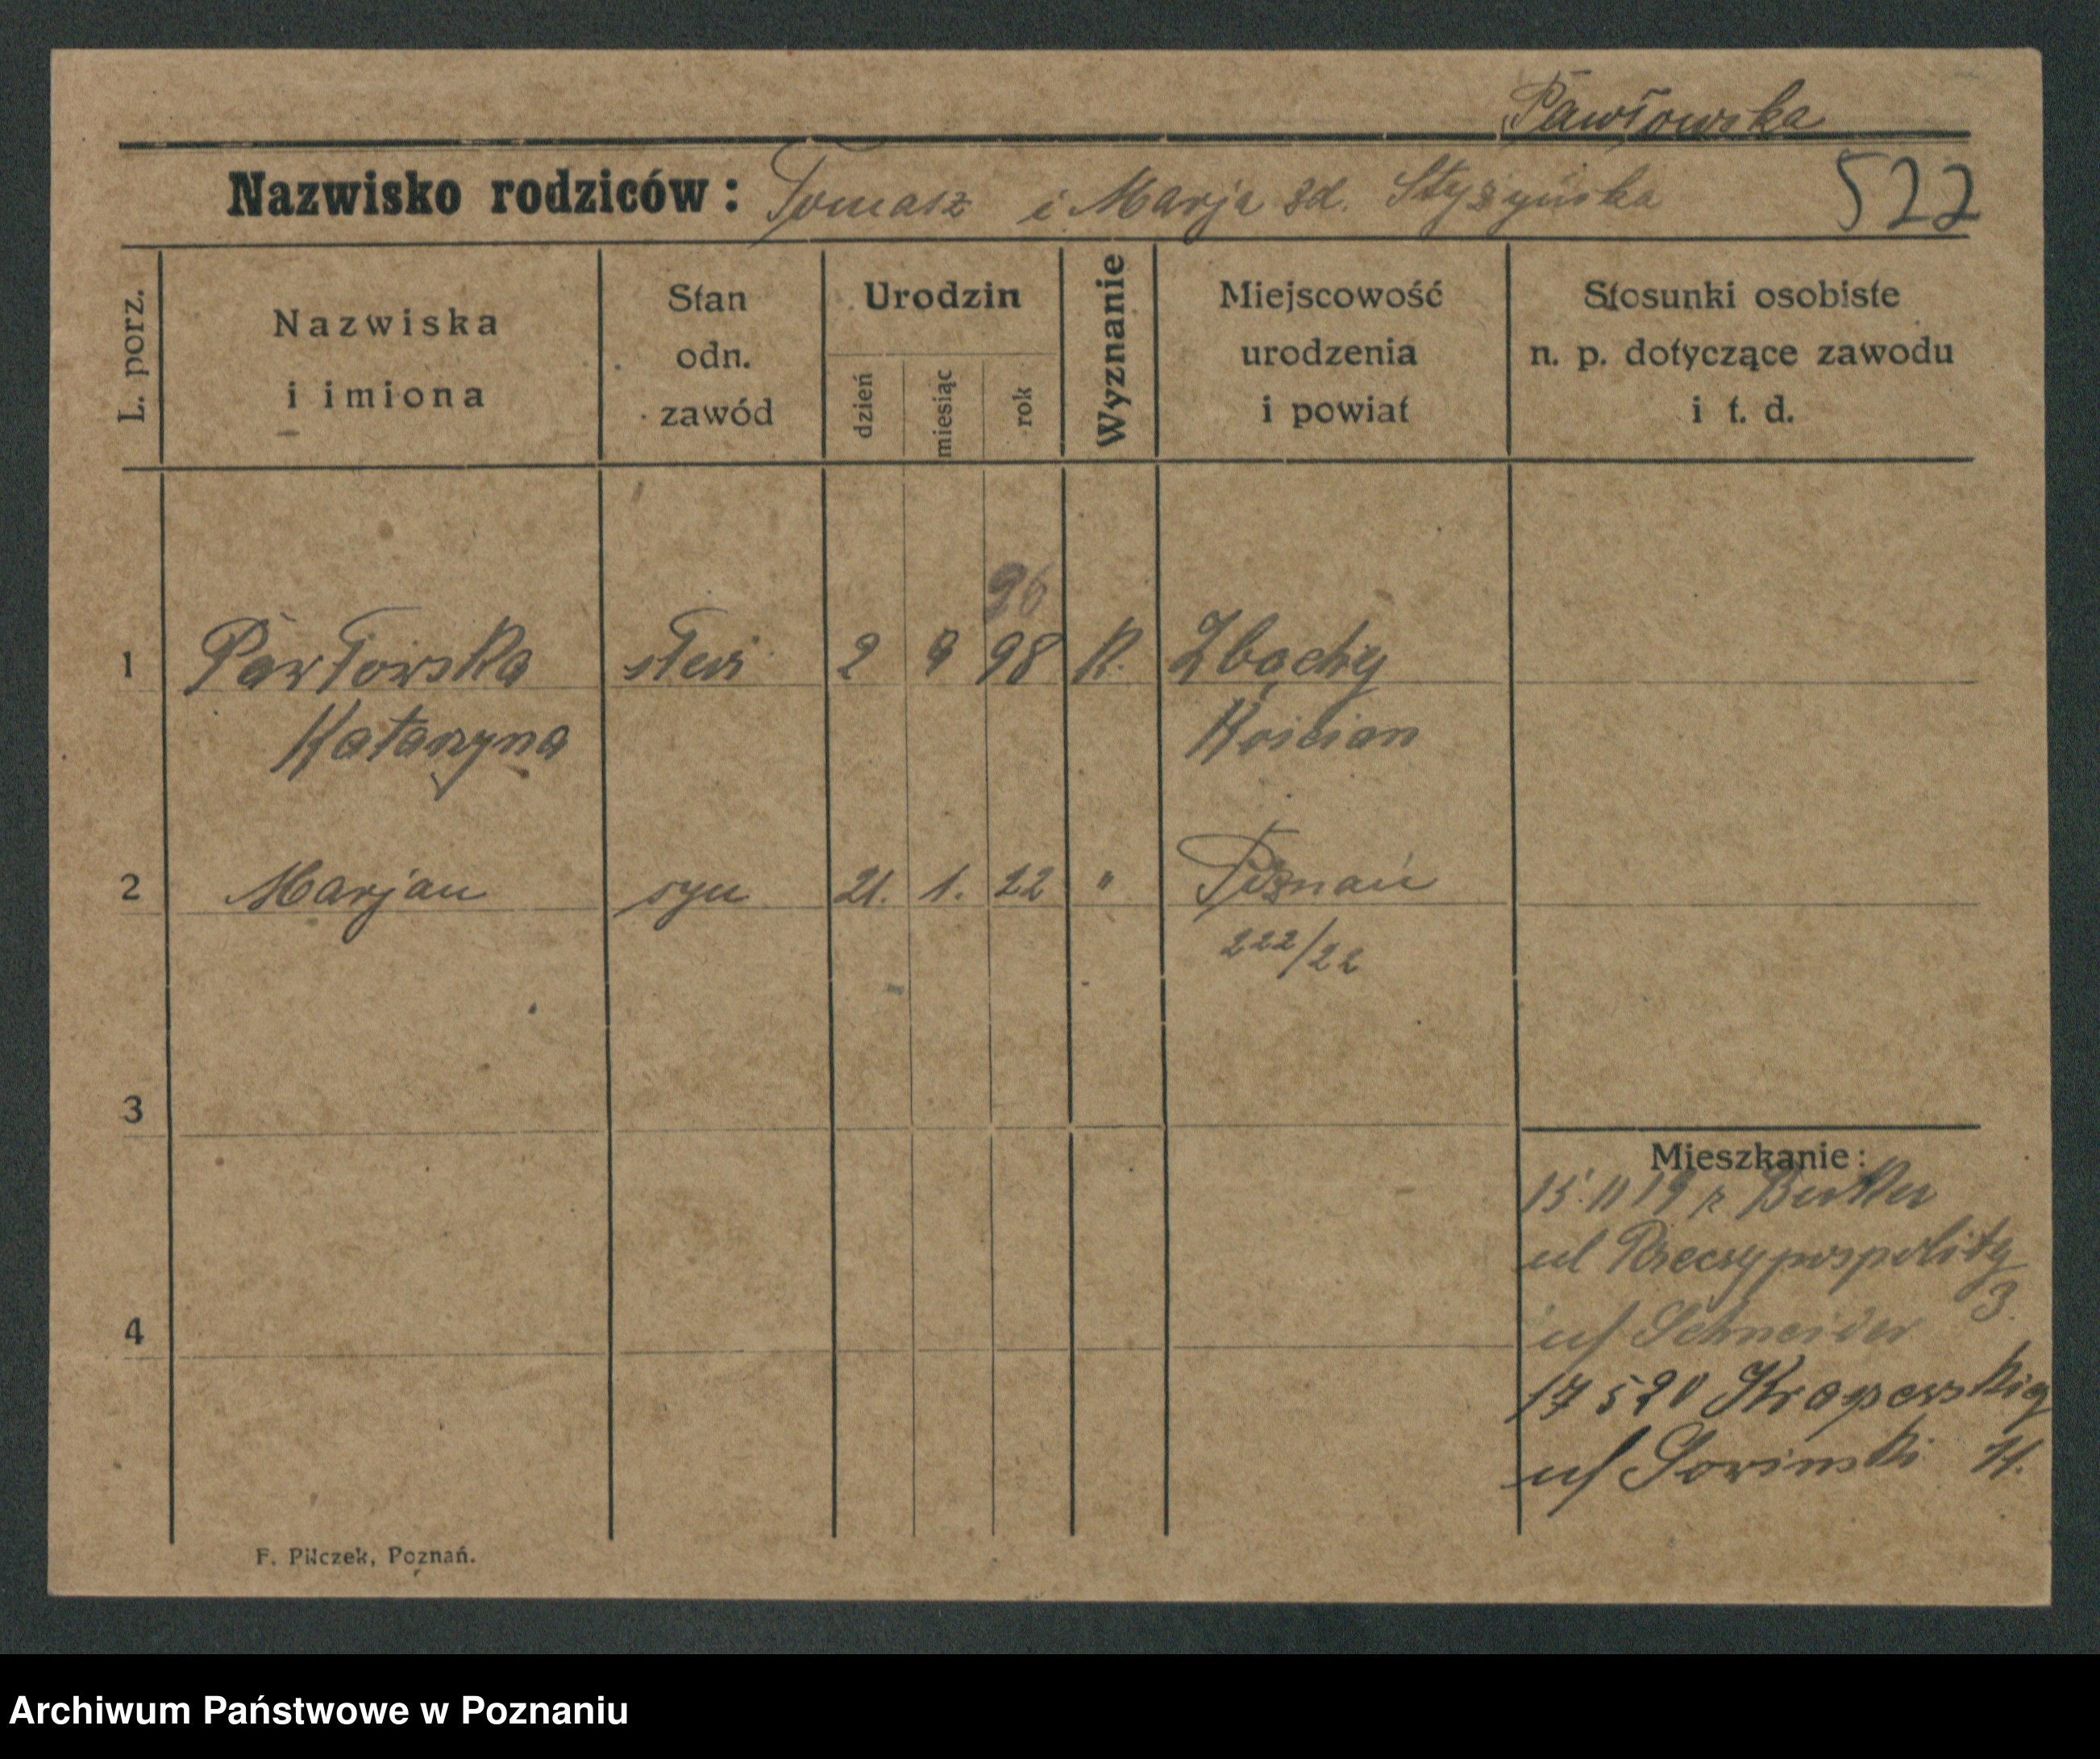 Pawłowska
Nazwisko rodziców: Tomasz i Marja zd. Styzyńska 522
L. porz.
Nazwiska
i imiona
Stan
odn.
zawód
Urodzin
dzień
miesiąc
rok
Wyznanie
Miejscowość
urodzenia
i powiat
Stosunki osobiste
n. p. dotyczące zawodu
i t. d.
96
1 Pawłowska 2 9 98 K. Zbąchy
Katarzyna Kościan
2 Marjan syn 21. 1. 22 " Poznań
222/22
3
4
Mieszkanie:
15 11 19 z
ul Rzeczypospolity
3.
u/ Schneider
17 5 20
u/ 11.
F. Pilczek, Poznań.
Archiwum Państwowe w Poznaniu